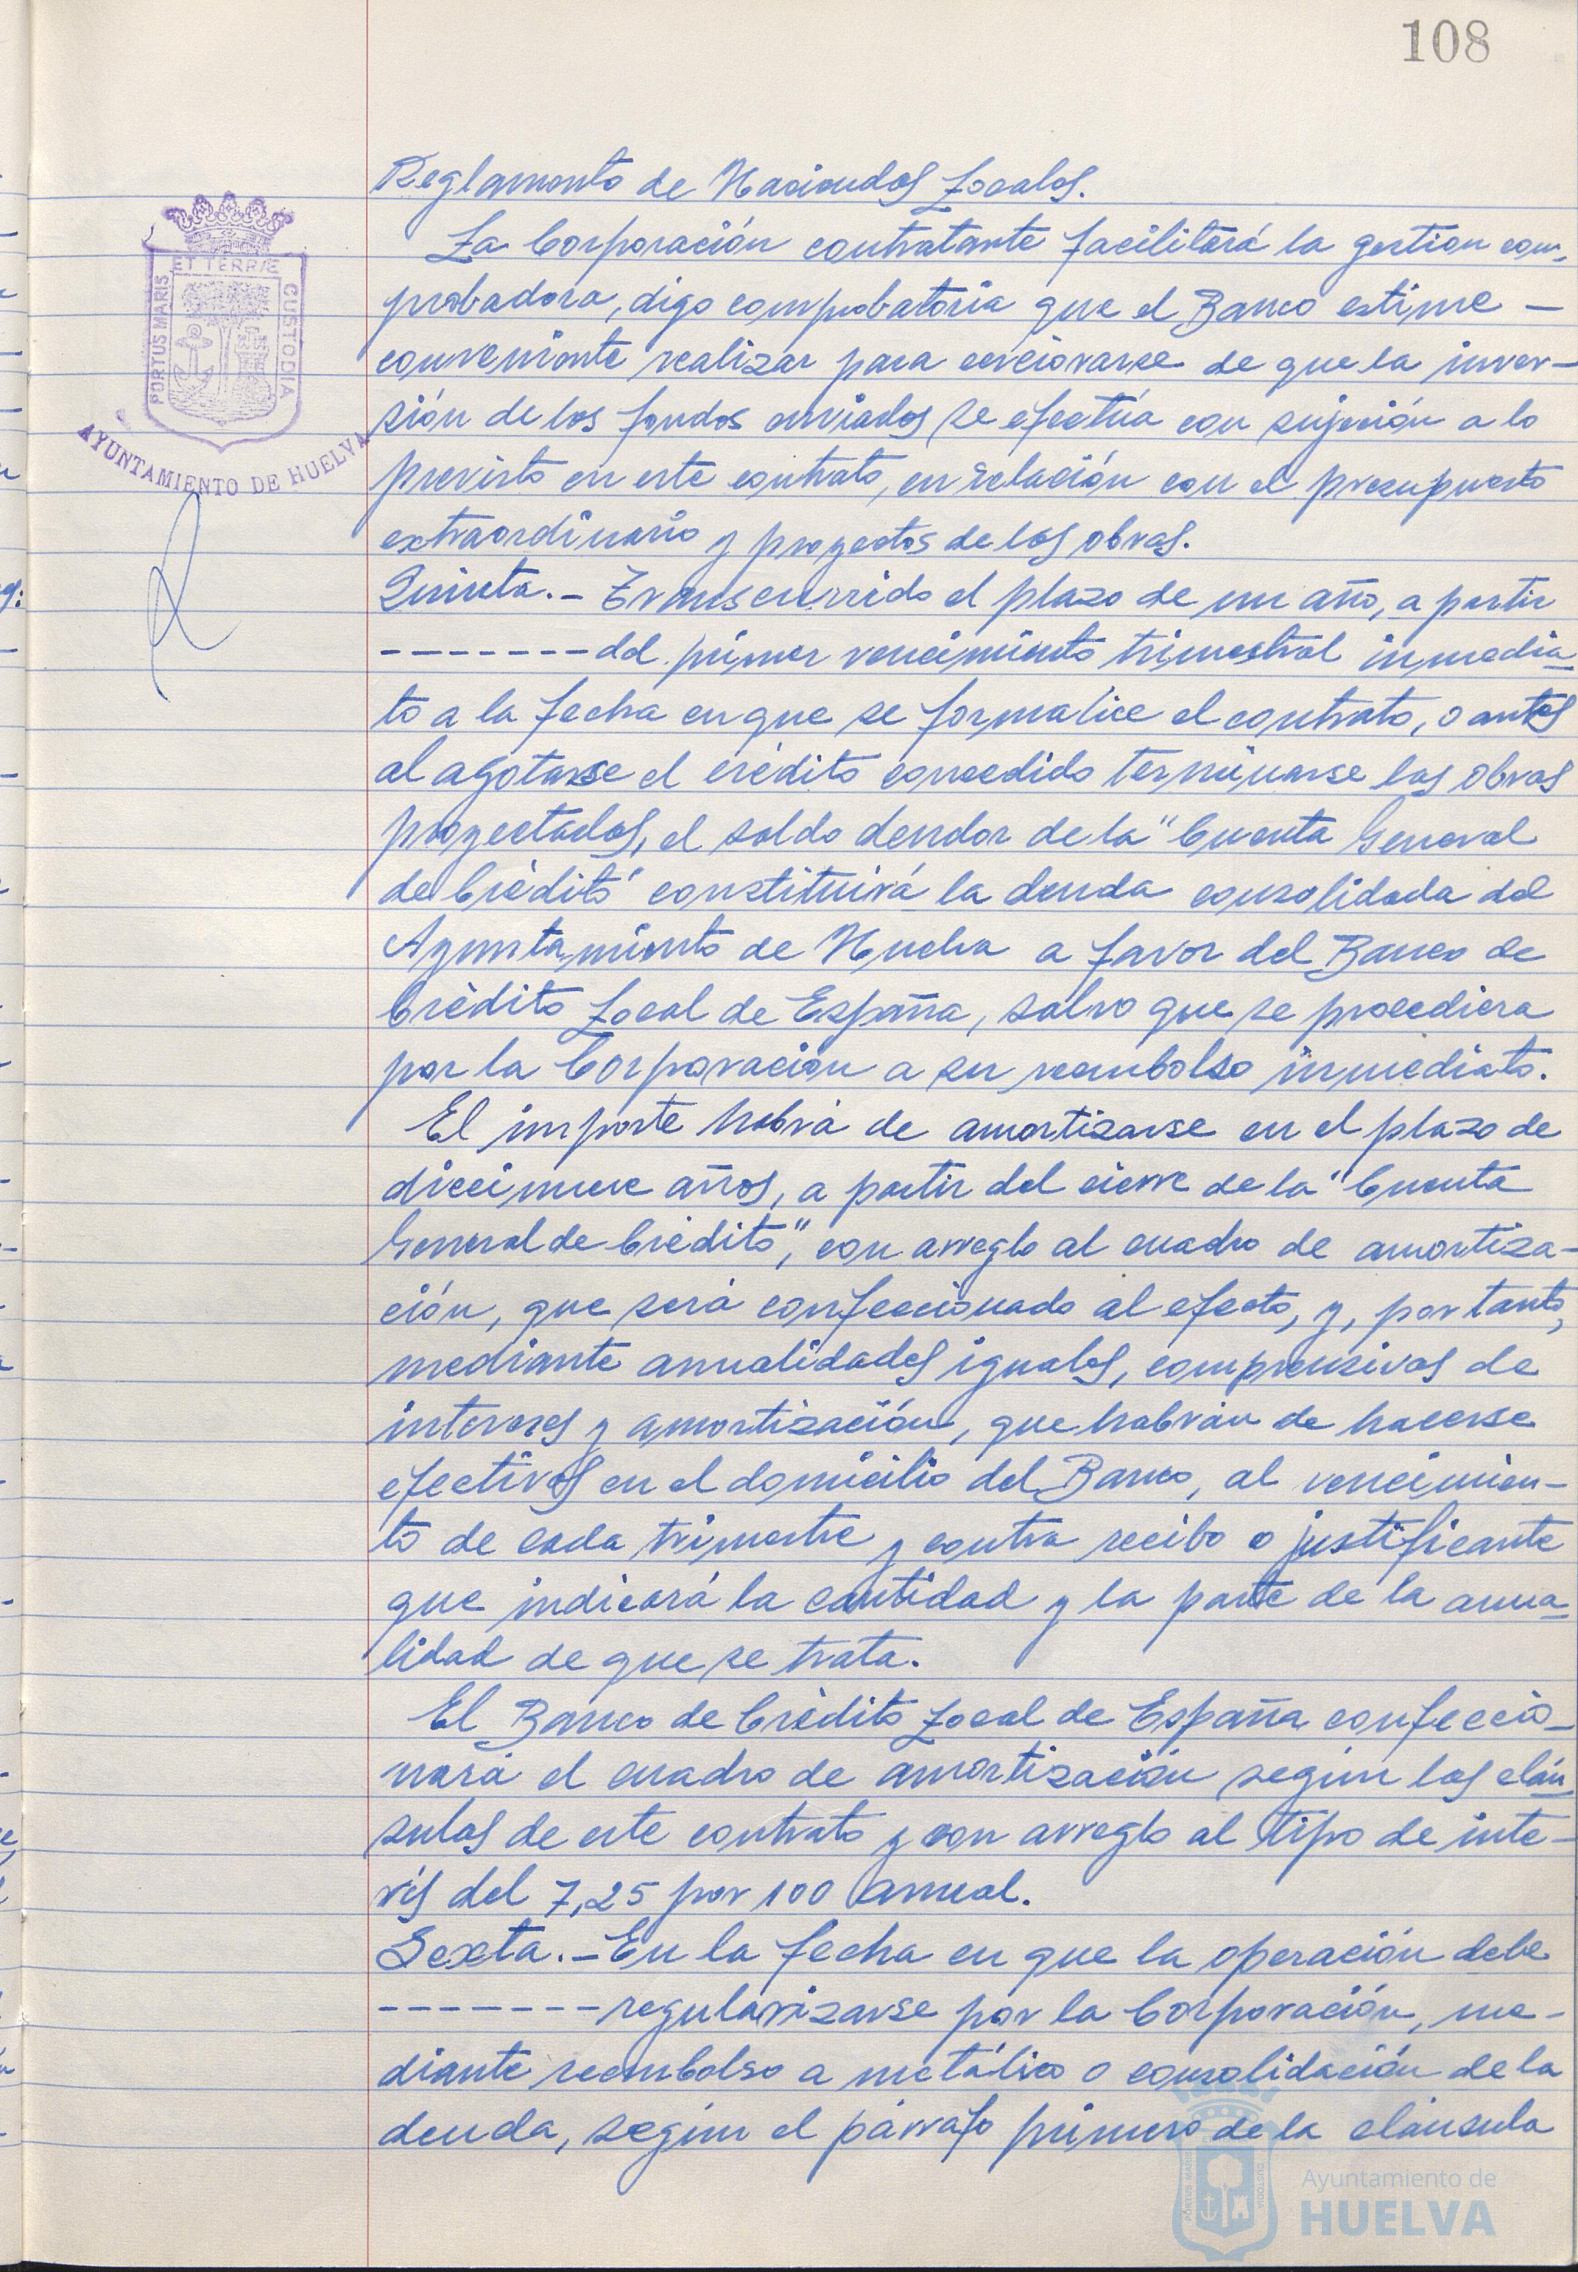 108
Reglamento de Haciendas Locales.
La Corporación contratante facilitará la gestion com-
probadora, digo comprobatoria que el Banco estime -
conveniente realizar para cerciorarse de que la inver-
sión de los fondos enviados se efectúa con sujeción a lo
previsto en este contrato, en relación con el presupuesto
extraordinario y proyectos de las obras.
Quinta.- Transcurrido el plazo de un año, a partir
-------del primer vencimiento trimestral inmedia-
to a la fecha en que se formalice el contrato, o antes
al agotarse el crédito concedido terminarse las obras
proyectadas, el saldo deudor de la "Cuenta General
de Crédito" constituirá la deuda consolidada del
Ayuntamiento de Huelva a favor del Banco de
Crédito Local de España, salvo que se procediera
por la Corporación a su reembolso inmediato.
El importe habrá de amortizarse en el plazo de
diecinueve años, a partir del cierre de la "Cuenta
General de Crédito", con arreglo al cuadro de amortiza-
ción, que será confeccionado al efecto, y, por tanto,
mediante anualidades iguales, comprensivas de
intereses y amortización, que habrán de hacerse
efectivas en el domicilio del Banco, al vencimien-
to de cada trimestre y contra recibo o justificante
que indicará la cantidad y la parte de la anua-
lidad de que se trata.
El Banco de Crédito Local de España confeccio-
nará el cuadro de amortización según las cláu-
sulas de este contrato y con arreglo al tipo de inte-
rés del 7,25 por 100 anual.
Sexta.- En la fecha en que la operación debe
-------regularizarse por la Corporación, me-
diante reembolso a metálico o consolidación de la
deuda, según el párrafo primero de la cláusula
PORTUS MARIS
ET TERRÆ
CUSTODIA
AYUNTAMIENTO DE HUELVA
Ayuntamiento de
HUELVA